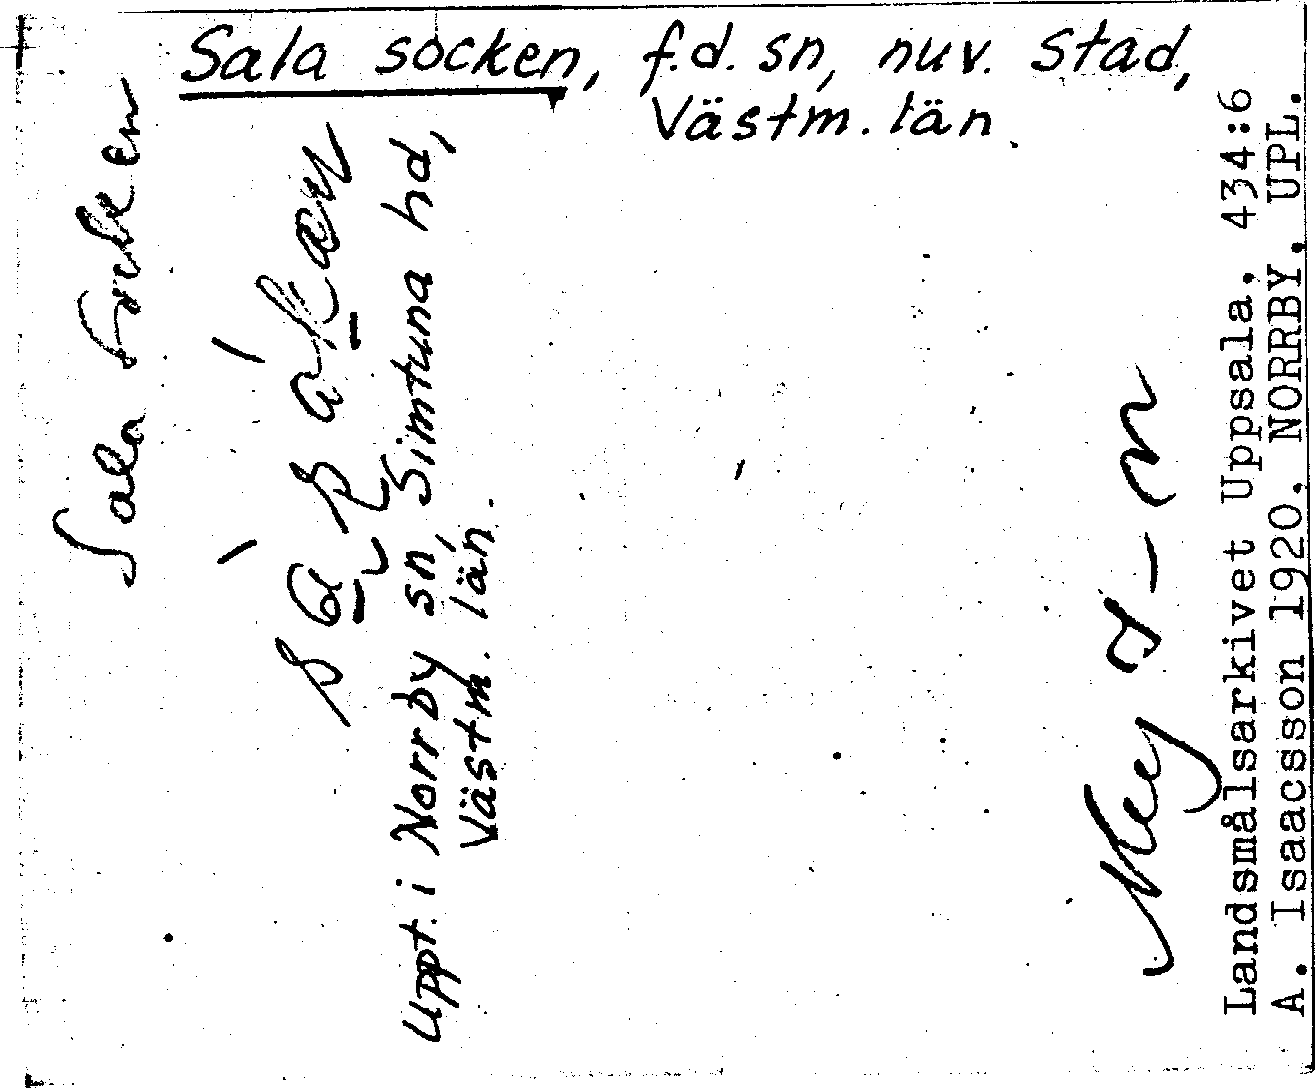 Sala socken, f.d. sn, nuv. stad,
Västm. län
Sala Socken
uppt. i Norrby sn, Simtuna hd,
Västm. län.
Landsmålsarkivet Uppsala, 434:6
A. Isaacsson 1920, NORRBY, UPL.